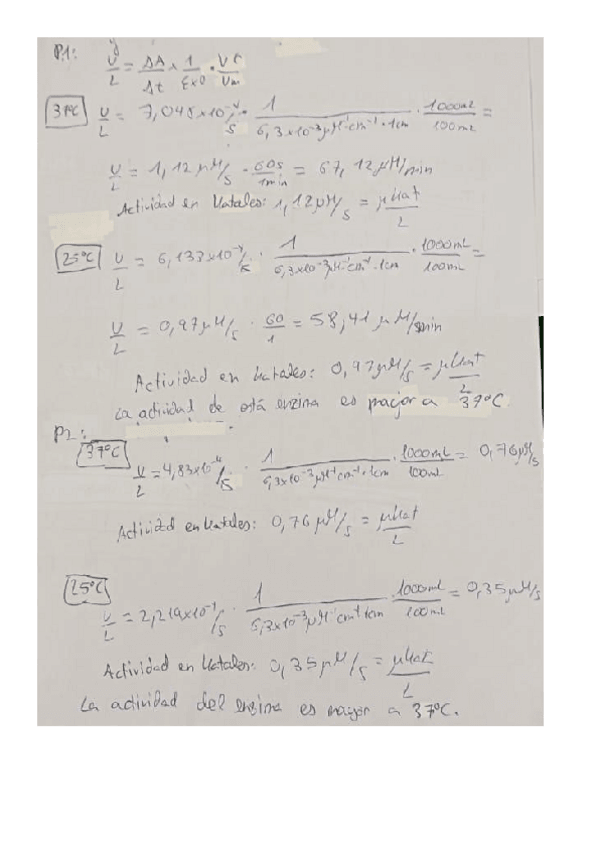 P1:
U/L = ΔA/Δt × 1/(ε×l) · Vt/Vm
37ºC U/L = 7,048×10⁻⁴/s · 1/(6,3×10⁻³ μM⁻¹cm⁻¹·1cm) · 1000mL/100mL =
U/L = 1,12 μM/s · 60s/1min = 67,12 μM/min
Actividad en Katales: 1,12 μM/s = μKat/L
25ºC U/L = 6,133×10⁻⁴/s · 1/(6,3×10⁻³ μM⁻¹cm⁻¹·1cm) · 1000mL/100mL =
U/L = 0,97 μM/s · 60/1 = 58,41 μM/min
Actividad en katales: 0,97 μM/s = μKat/L
La actividad de está enzina es mayor a 37ºC
P2:
37ºC U/L = 4,83×10⁻⁴/s · 1/(6,3×10⁻³ μM⁻¹cm⁻¹·1cm) · 1000mL/100mL = 0,76 μM/s
Actividad en Katales: 0,76 μM/s = μKat/L
25ºC
U/L = 2,219×10⁻⁴/s · 1/(6,3×10⁻³ μM⁻¹cm⁻¹·1cm) · 1000ml/100mL = 0,35 μM/s
Actividad en Katales: 0,35 μM/s = μKat/L
La actividad del enzina es mayor a 37ºC.